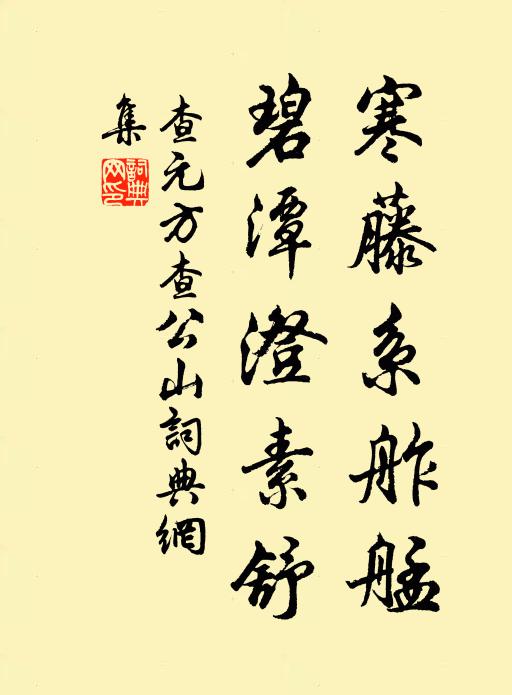 寒藤系舴艋
碧潭澄素舒
查元方查公山詞典網
集
詞典網印